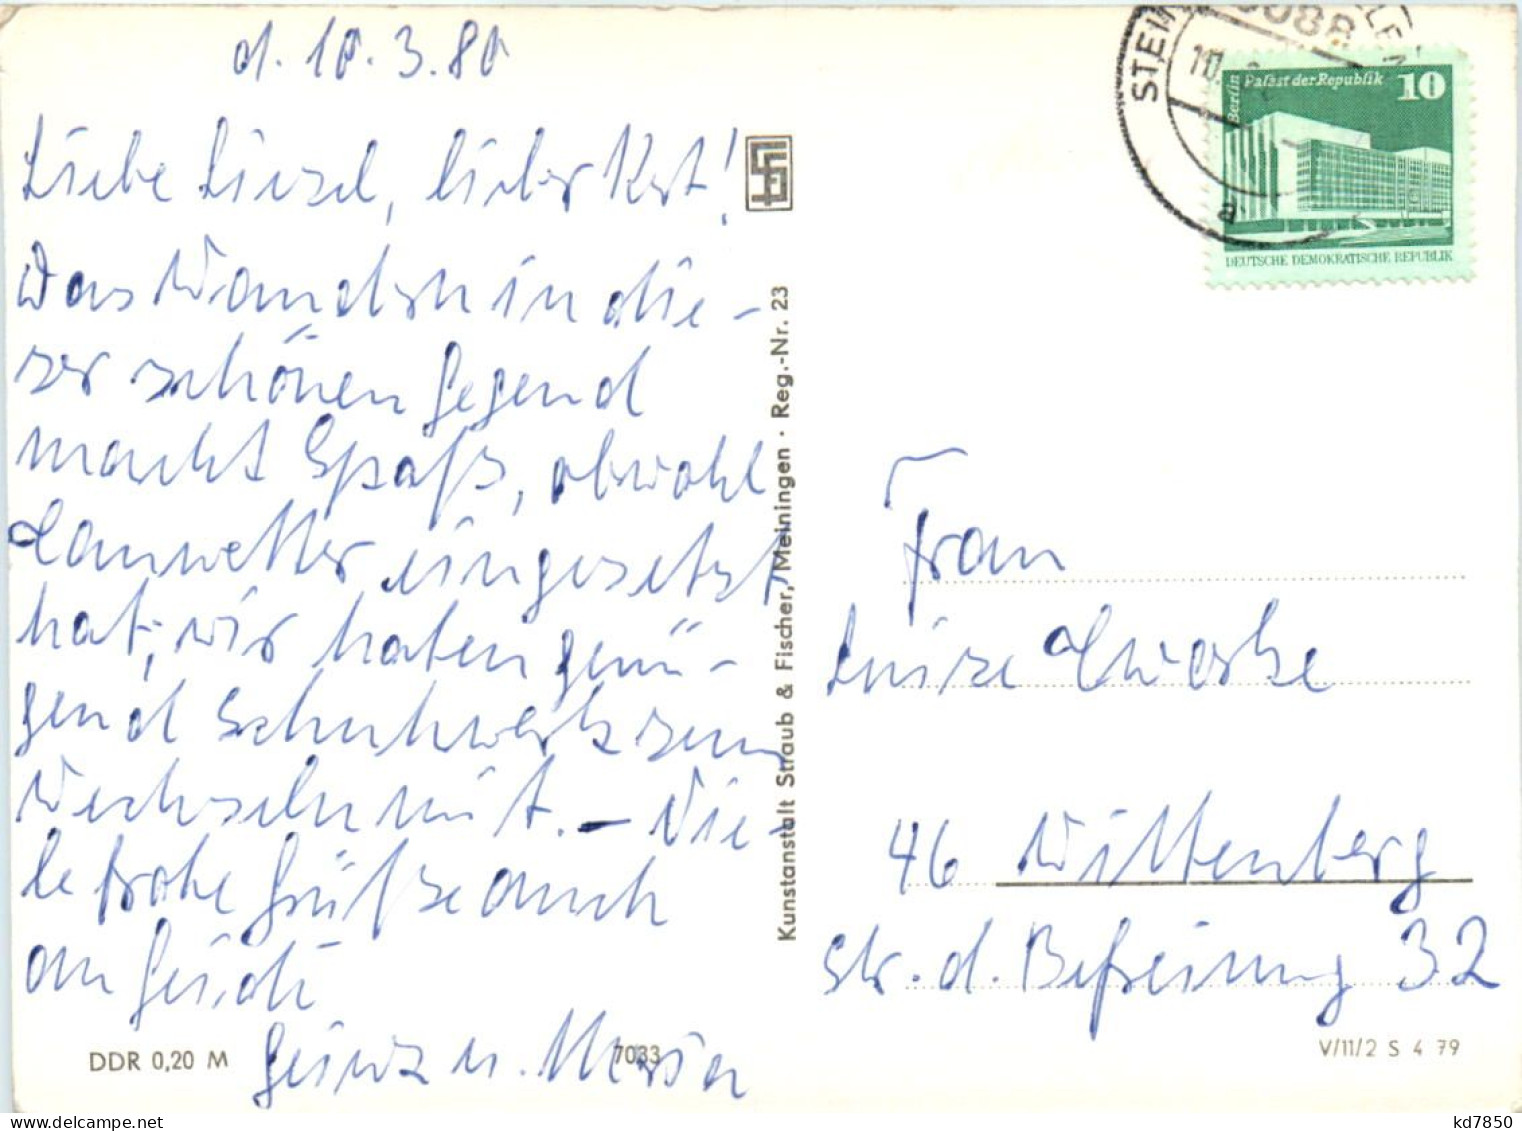 d. 10.3.80
Liebe Liesel, lieber Kurt!
Das Wandern in die-
ser schönen Gegend
macht Spaß, obwohl
Tauwetter eingesetzt
hat; wir haben genü-
gend Schuhwerk zum
Wechseln mit. – Vie-
le frohe Grüße auch
an Heidi
Heinz u.
DDR 0,20 M
7033
Kunstanstalt Straub & Fischer, Meiningen · Reg.-Nr. 23
STEIN
10.
a
Berlin Palast der Republik 10
DEUTSCHE DEMOKRATISCHE REPUBLIK
Frau
Luise
46 Wittenberg
Str. d. Befreiung 32
V/11/2 S 4 79
kd7850